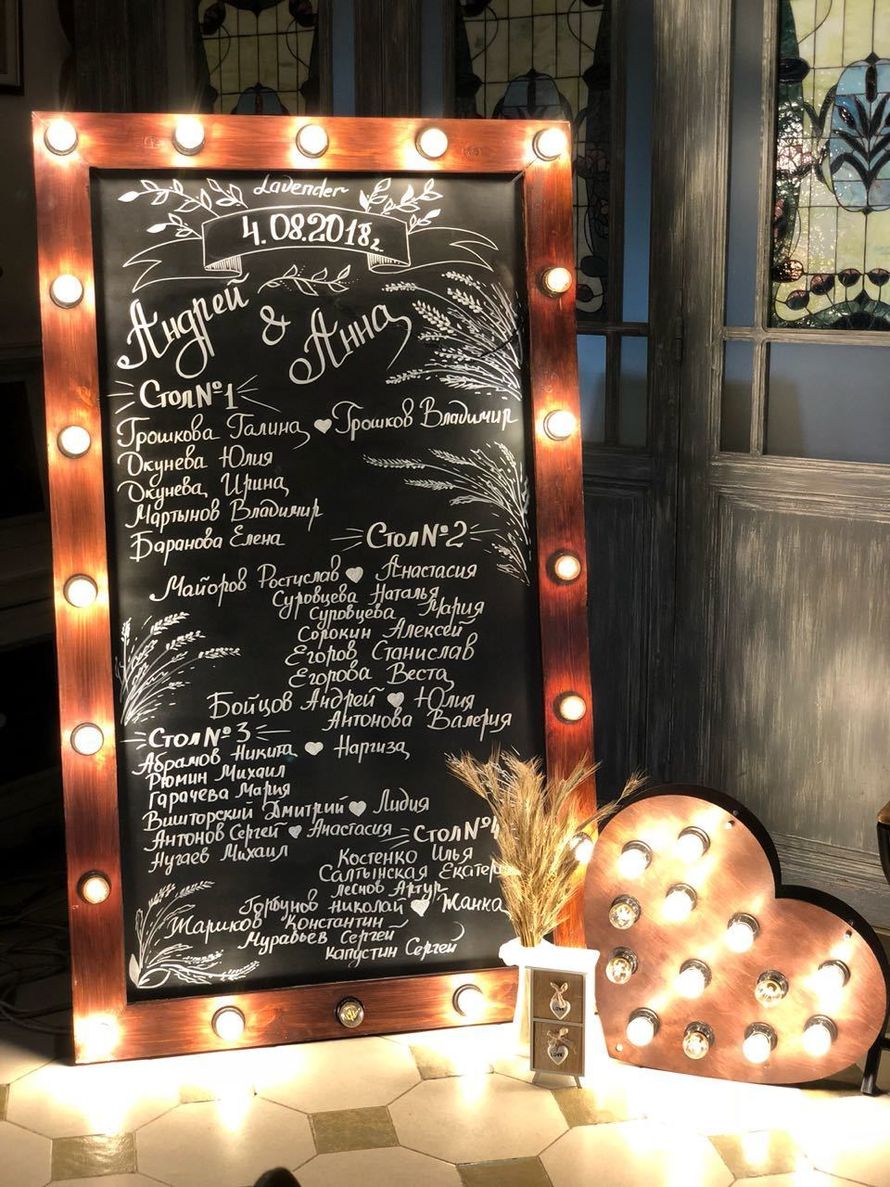 Lavender
4.08.2018г.
Андрей & Анна
Стол №1
Грошкова Галина Грошков Владимир
Окунева Юлия
Окунева Ирина
Мартынов Владимир
Баранова Елена
Стол №2
Майоров Ростислав Анастасия
Суровцева Наталья
Суровцева Мария
Сорокин Алексей
Егоров Станислав
Егорова Веста
Бойцов Андрей Юлия
Антонова Валерия
Стол №3
Абрамов Никита Наргиза
Рюмин Михаил
Гарачева Мария
Вишторский Дмитрий Лидия
Антонов Сергей Анастасия
Нугаев Михаил
Стол №4
Костенко Илья
Салтынская Екатер
Леснов Артур
Горбунов Николай Жанна
Жариков Константин
Муравьев Сергей
Капустин Сергей